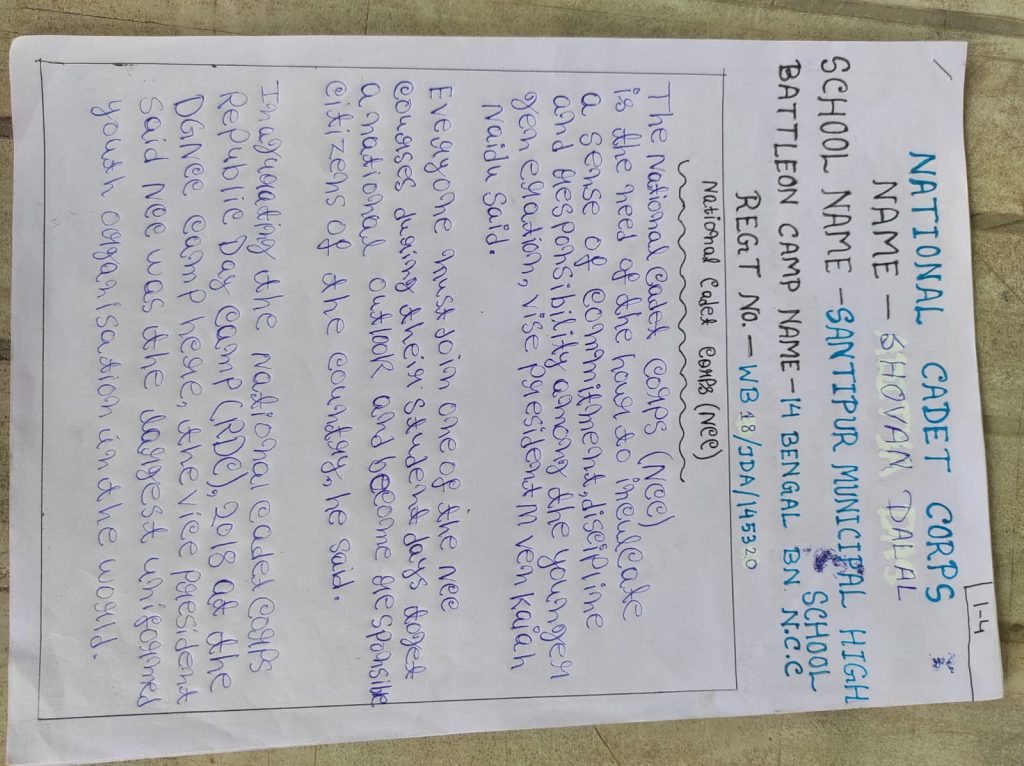 1-4
NATIONAL CADET CORPS *
NAME - SHOVAN DALAL
SCHOOL NAME - SANTIPUR MUNICIPAL HIGH
SCHOOL
BATTLEON CAMP NAME - 14 BENGAL BN. N.C.C
REGT No. - WB18/JDA/145320
National Cadet Corps (NCC)
The National Cadet Corps (NCC)
is the need of the hour to inculcate
a sense of commitment, discipline
and responsibility among the younger
generation, vise president M venkaiah
Naidu said.
Everyone must join one of the NCC
courses during their student days to get
a national outlook and become responsible
citizens of the country, he said.
Inagurating the national caded Corps
Republic Day Camp (RDC), 2018 at the
DGNCC Camp here, the vice president
said NCC was the largest uniformed
youth organisation in the world.